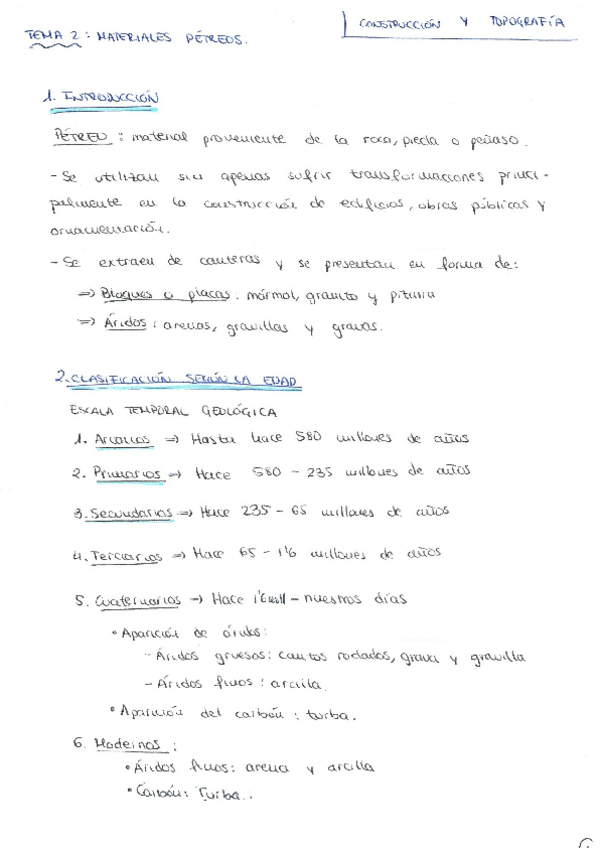 CONSTRUCCIÓN Y TOPOGRAFÍA
TEMA 2: MATERIALES PÉTREOS.
1. INTRODUCCIÓN
PÉTREO: material proveniente de la roca, piedra o peñaso.
- Se utilizan sin apenas sufrir transformaciones princi-
palmente en la construcción de edificios, obras públicas y
ornamentación.
- Se extraen de canteras y se presentan en forma de:
=> Bloques o placas: mármol, granito y pizarra
=> Áridos: arenas, gravillas y gravas.
2. CLASIFICACIÓN SEGÚN LA EDAD
ESCALA TEMPORAL GEOLÓGICA
1. Arcaicos => Hasta hace 580 millones de años
2. Primarios => Hace 580 - 235 millones de años
3. Secundarios => Hace 235 - 65 millones de años
4. Terciarios => Hace 65 - 1'6 millones de años
5. Cuaternarios -> Hace 1'6 mill - nuestros días
• Aparición de áridos:
- Áridos gruesos: cantos rodados, grava y gravilla
- Áridos finos: arcilla.
• Aparición del carbón: turba.
6. Modernos:
• Áridos finos: arena y arcilla
• Carbón: Turba..